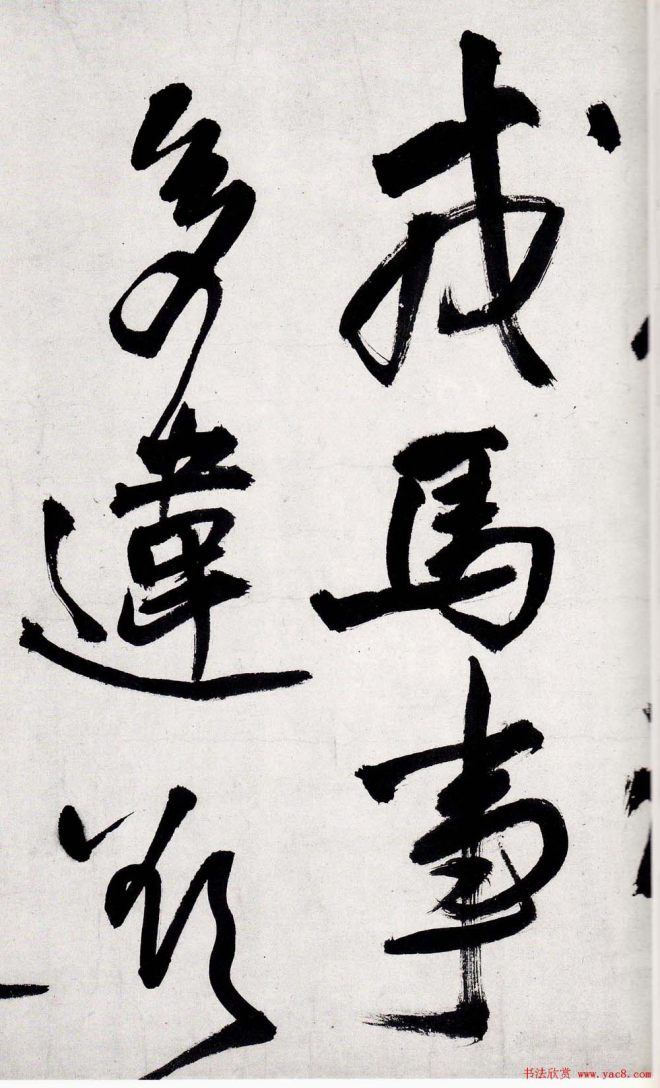 戎馬事
多違
书法欣赏 www.yac8.com